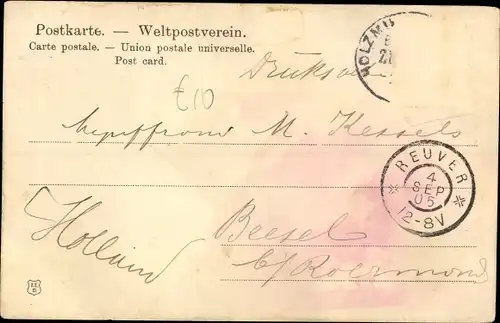 Postkarte. — Weltpostverein.
Carte postale. — Union postale universelle.
Post card.
HOLZMI
£10
M. Kessels
REUVER
4
SEP
05
12-8V
Holland
Beesel
b/Roermond